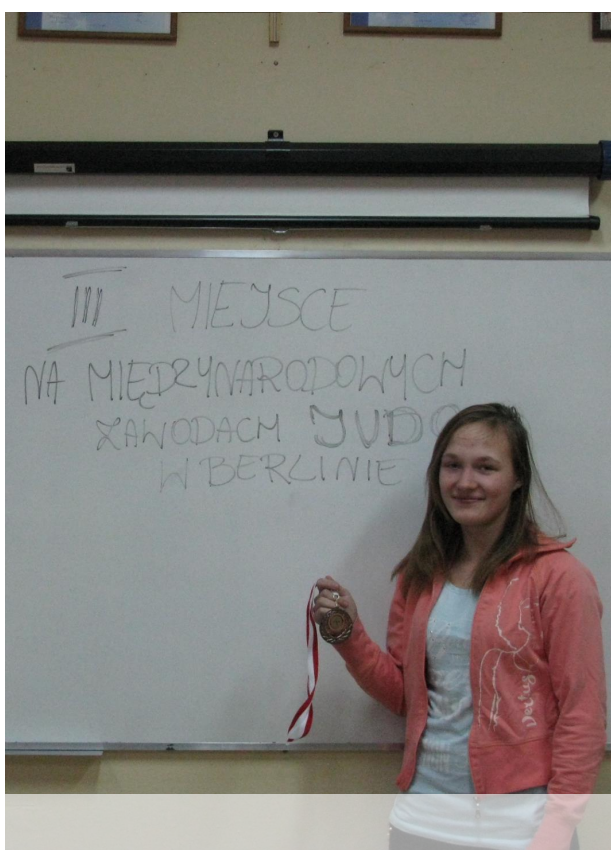 III MIEJSCE
NA MIĘDZYNARODOWYCH
ZAWODACH JUDO
W BERLINIE